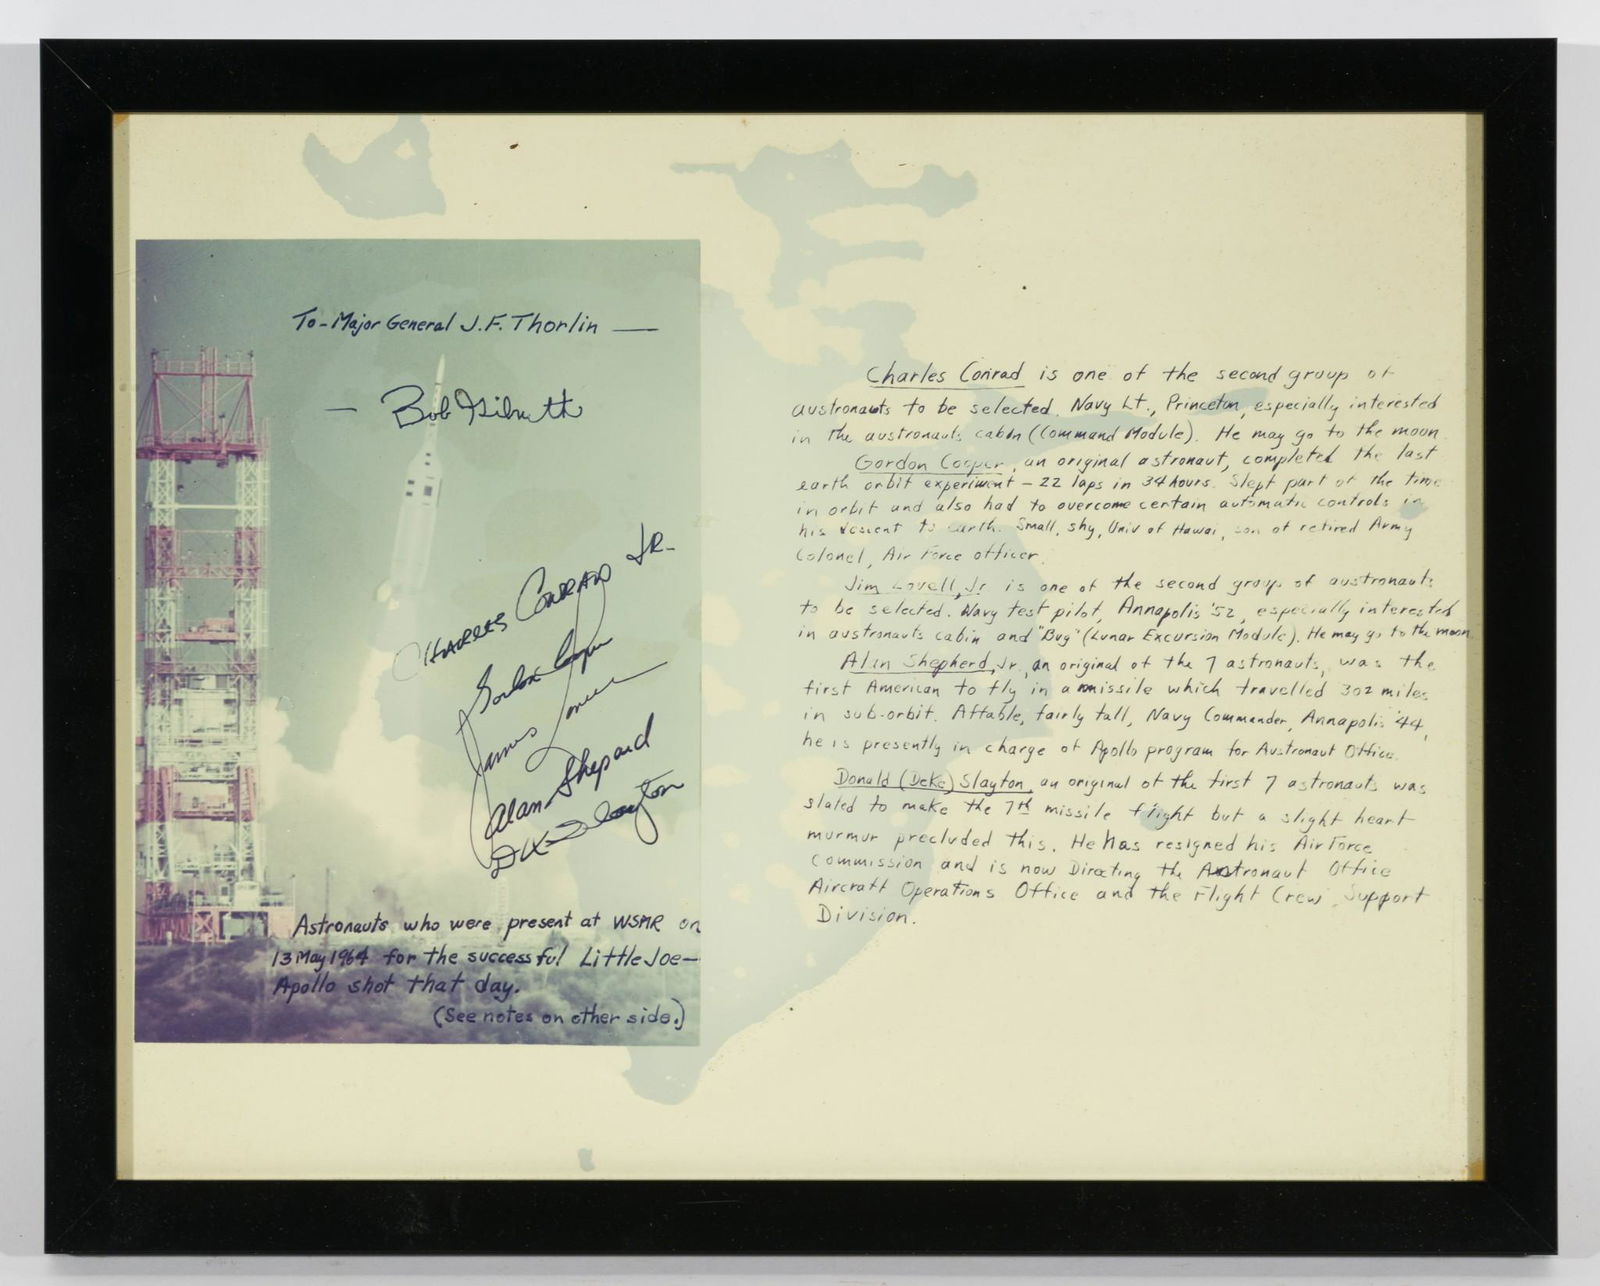 To-Major General J.F. Thorlin —
— Bob Gilruth
CHARLES CONRAD JR.
Gordon Cooper
James Lovell
Alan Shepard
DK Slayton
Astronauts who were present at WSMR on
13 May 1964 for the successful Little Joe-
Apollo shot that day.
(See notes on other side.)
Charles Conrad is one of the second group of
austronauts to be selected. Navy Lt., Princeton, especially interested
in the austronauts cabin (Command Module). He may go to the moon.
Gordon Cooper, an original astronaut, completed the last
earth orbit experiment - 22 laps in 34 hours. Slept part of the time
in orbit and also had to overcome certain automatic controls in
his descent to earth. Small, shy, Univ of Hawai, son of retired Army
Colonel, Air Force officer.
Jim Lovell, Jr. is one of the second group of austronauts
to be selected. Navy test pilot, Annapolis '52, especially interested
in austronauts cabin and "Bug" (Lunar Excursion Module). He may go to the moon.
Alan Shepherd, Jr, an original of the 7 astronauts, was the
first American to fly in a missile which travelled 302 miles
in sub-orbit. Affable, fairly tall, Navy Commander, Annapolis '44,
he is presently in charge of Apollo program for Austronaut Office.
Donald (Deke) Slayton, an original of the first 7 astronauts was
slated to make the 7th missile flight but a slight heart
murmur precluded this. He has resigned his Air Force
Commission and is now Directing the Astronaut Office
Aircraft Operations Office and the Flight Crew Support
Division.